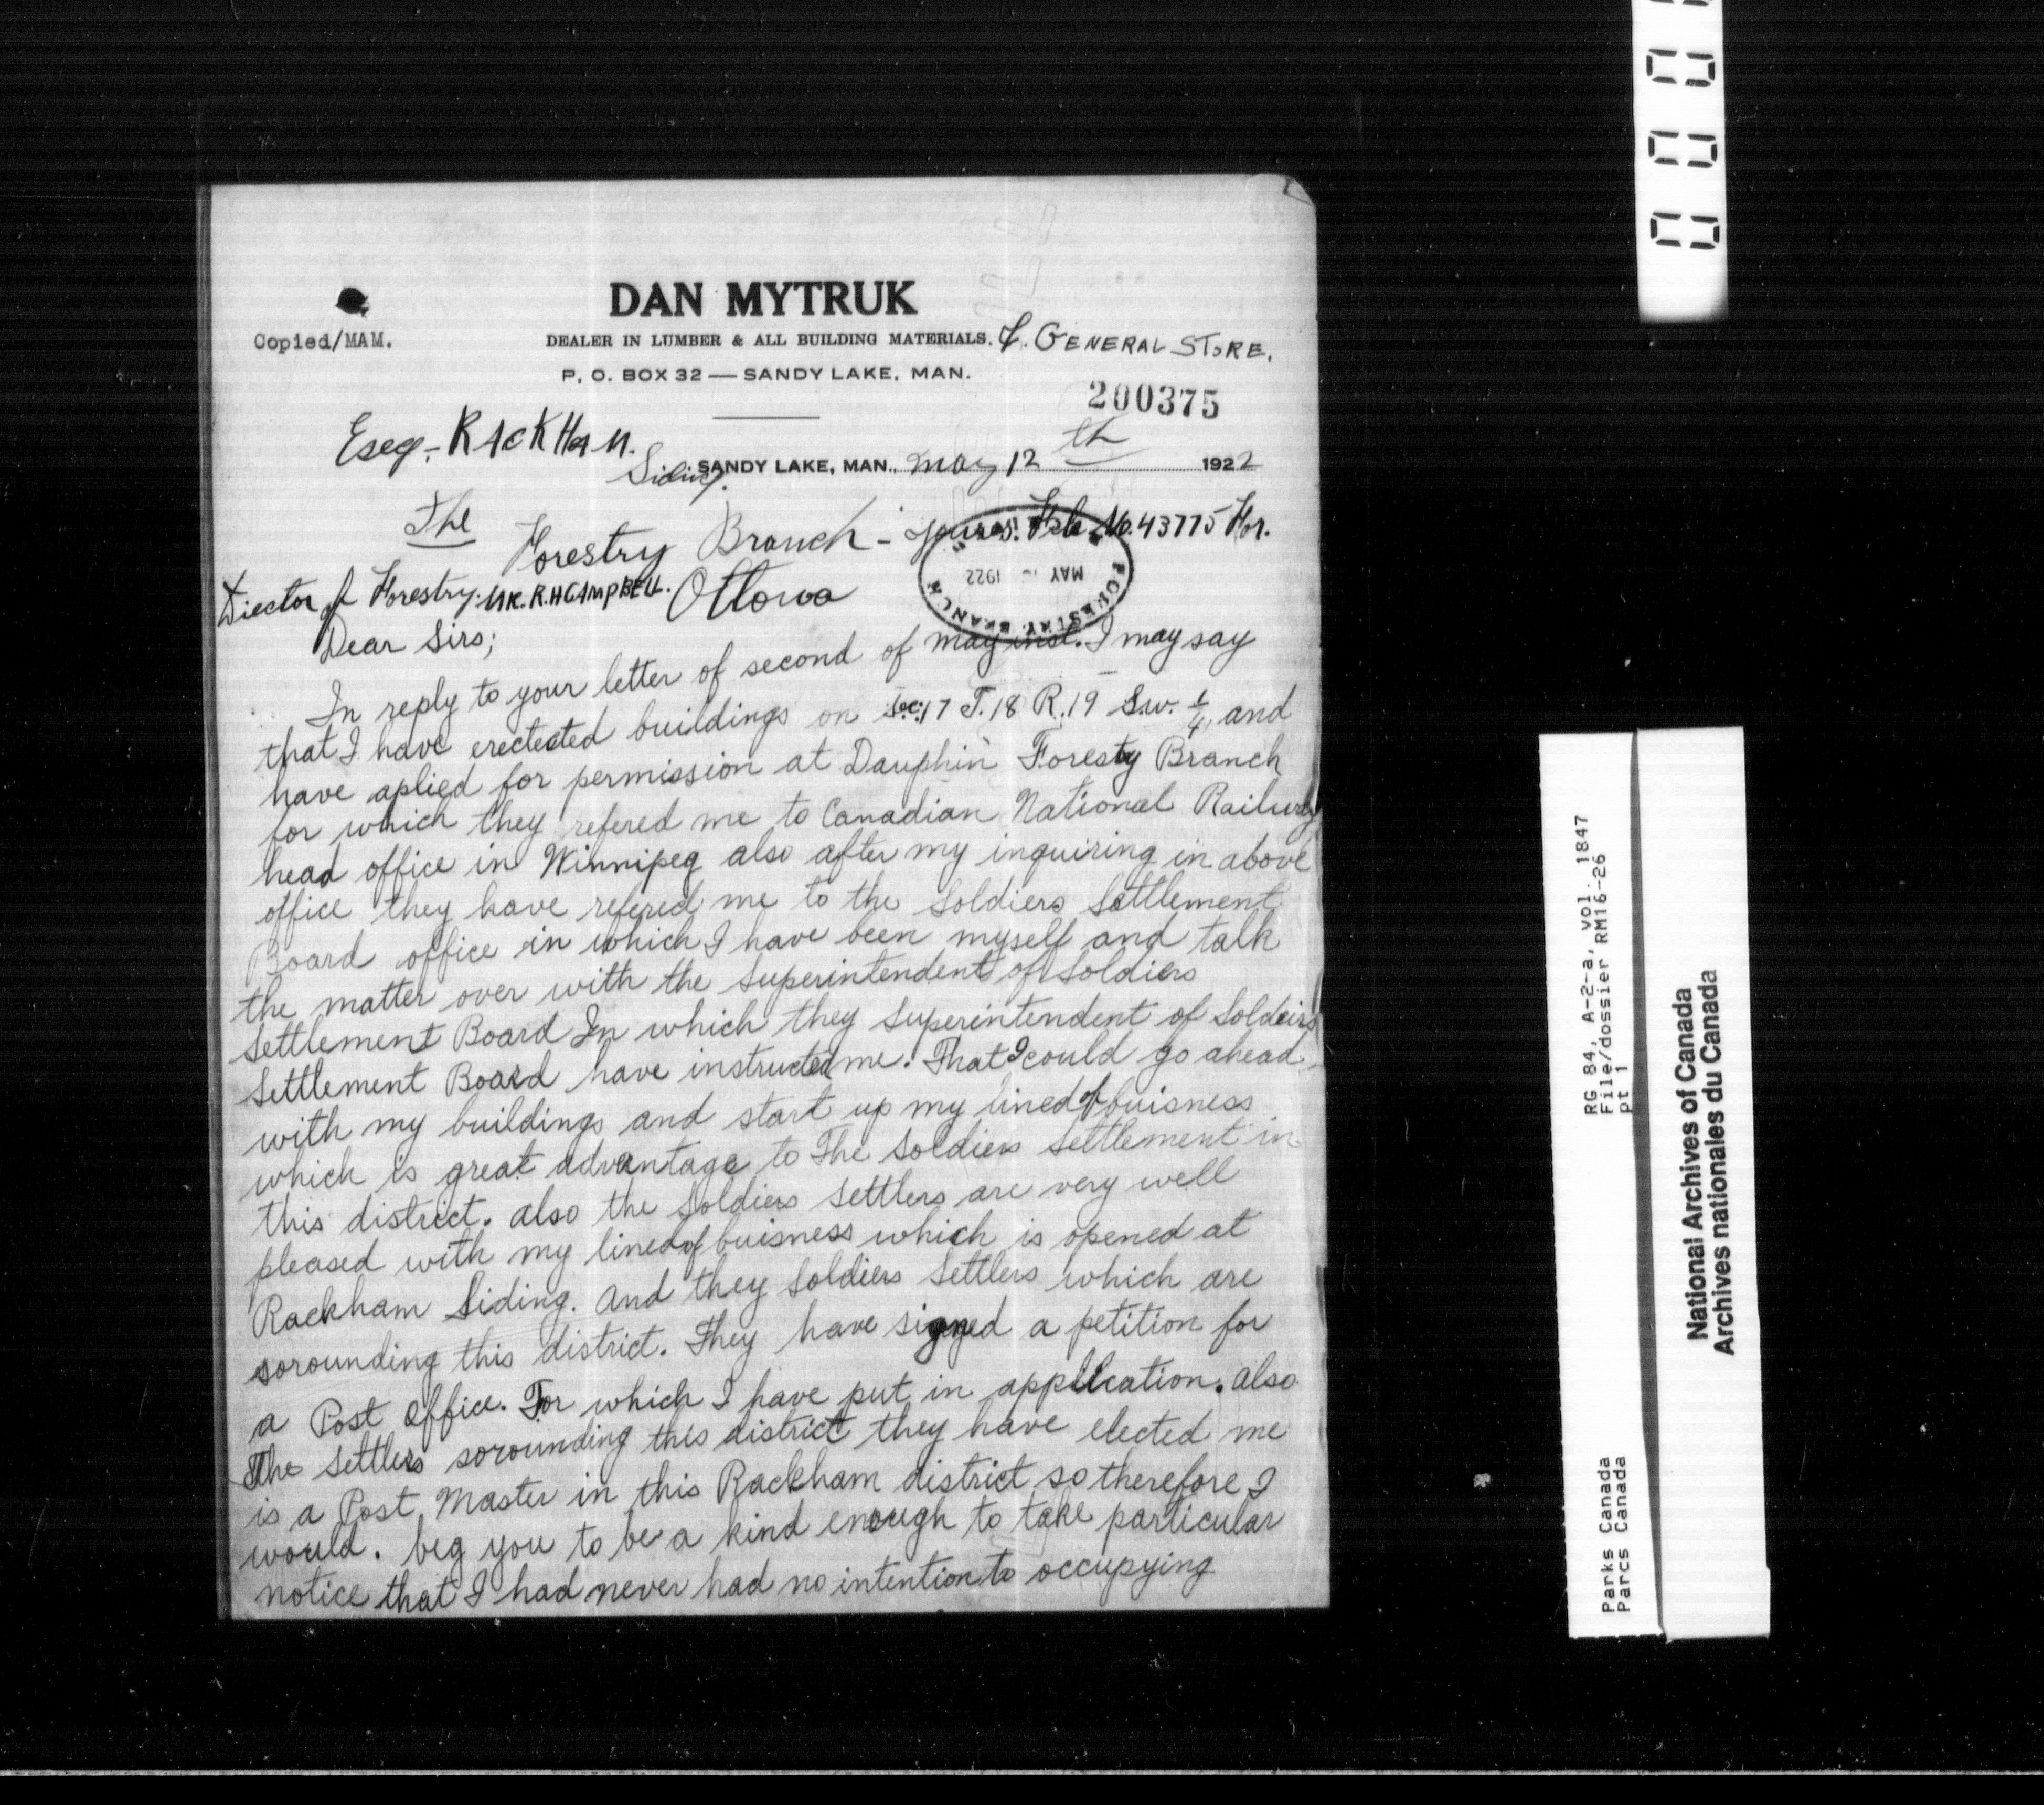 DAN MYTRUK
Copied/MAM.
DEALER IN LUMBER & ALL BUILDING MATERIALS. & GENERAL STORE.
P. O. BOX 32 — SANDY LAKE, MAN.
200375
RACKHAM.
Siding. SANDY LAKE, MAN., May 12th 1922
The
Forestry Branch - yours. File No. 43775 For.
Director of Forestry. MR. R.H CAMPBELL. Ottowa
FORESTRY BRANCH
MAY 1922
Dear Sirs;
In reply to your letter of second of may inst. I may say
that I have erecteted buildings on Sec: 17 T. 18 R. 19 S.w. 1/4, and
have aplied for permission at Dauphin Foresty Branch
for which they refered me to Canadian National Railway
head office in Winnipeg also after my inquiring in above
office they have refered me to the Soldiers Settlement
Board office in which I have been myself and talk
the matter over with the Superintendent of Soldiers
Settlement Board In which they Superintendent of Soldeirs
Settlement Board have instructed me. That I could go ahead
with my buildings and start up my lined of buisness
which is great advantage to The Soldiers Settlement in
this district. also the Soldiers Settlers are very well
pleased with my lined of buisness which is opened at
Rackham Siding. And they Soldiers Settlers which are
sorounding this district. They have signed a petition for
a Post Office. For which I have put in application. also
The Settlers sorounding this district they have elected me
is a Post Master in this Rackham district so therefore I
would. beg you to be a kind enough to take particular
notice that I had never had no intention to occupying
RG 84, A-2-a, vol. 1847
File/dossier RM16-26
pt 1
Parks Canada
Parcs Canada
National Archives of Canada
Archives nationales du Canada